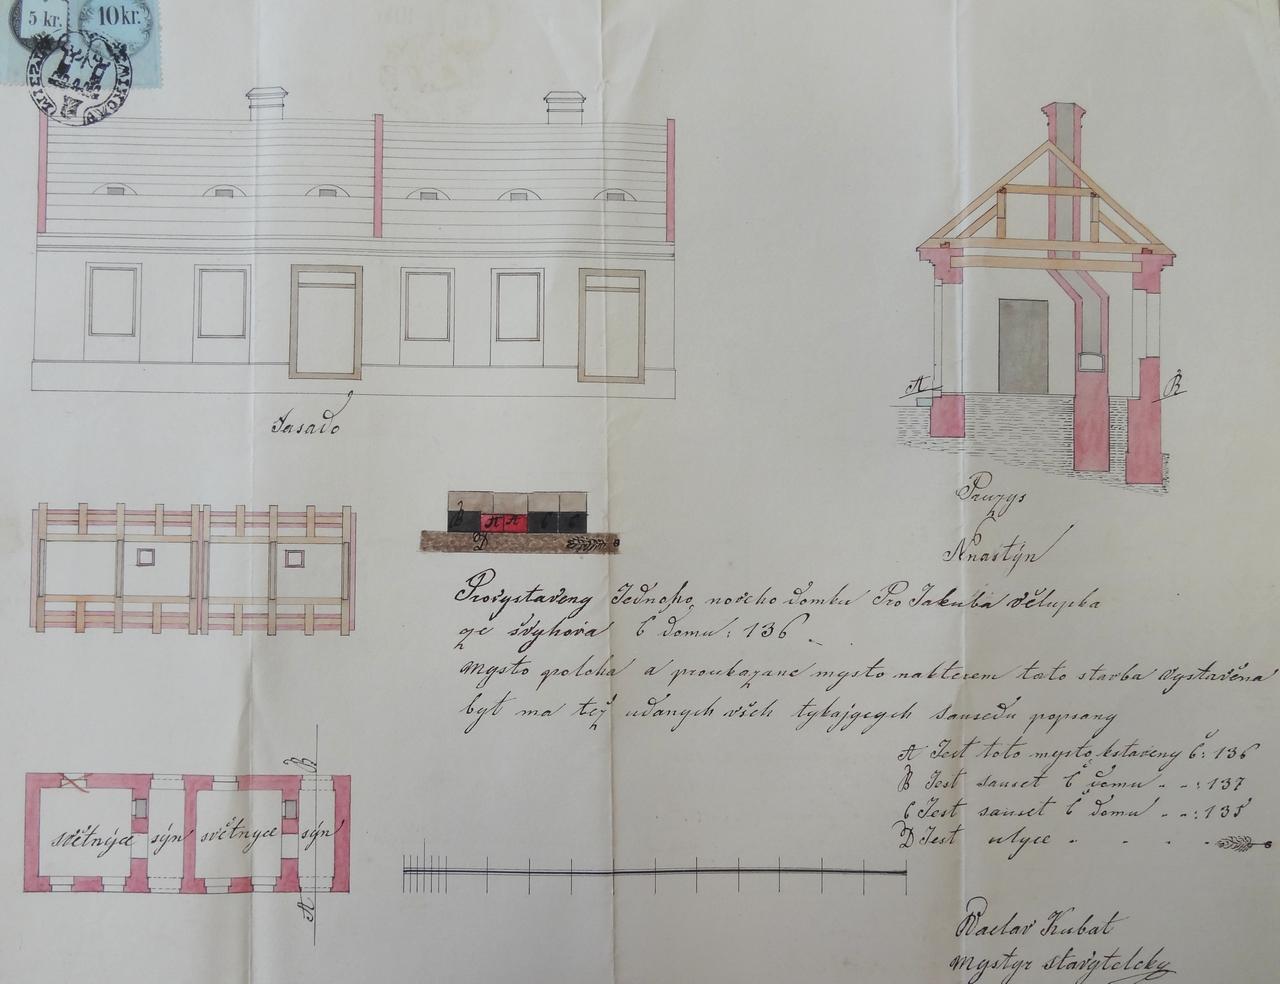 5 kr.
10 kr.
Fasado
A
B
Pruzys
B
A A
C C
D
Provystaveny Jednoho noveho domku Pro Jakuba
C domu: 136
mysto poloha a proukazane mysto nakterem tato stavba vystavěna
byt ma též udanych všch tykajgcgch sausedu popsany
A Jest toto mysto kstaveny Č: 136
B Jest sauset Č domu - - : 137
C Jest sauset Č domu - - : 135
D Jest ulyce - - - -
B
světnyce syn světnyce syn
A
Vaclav Kubat
mystyr stavytelcky